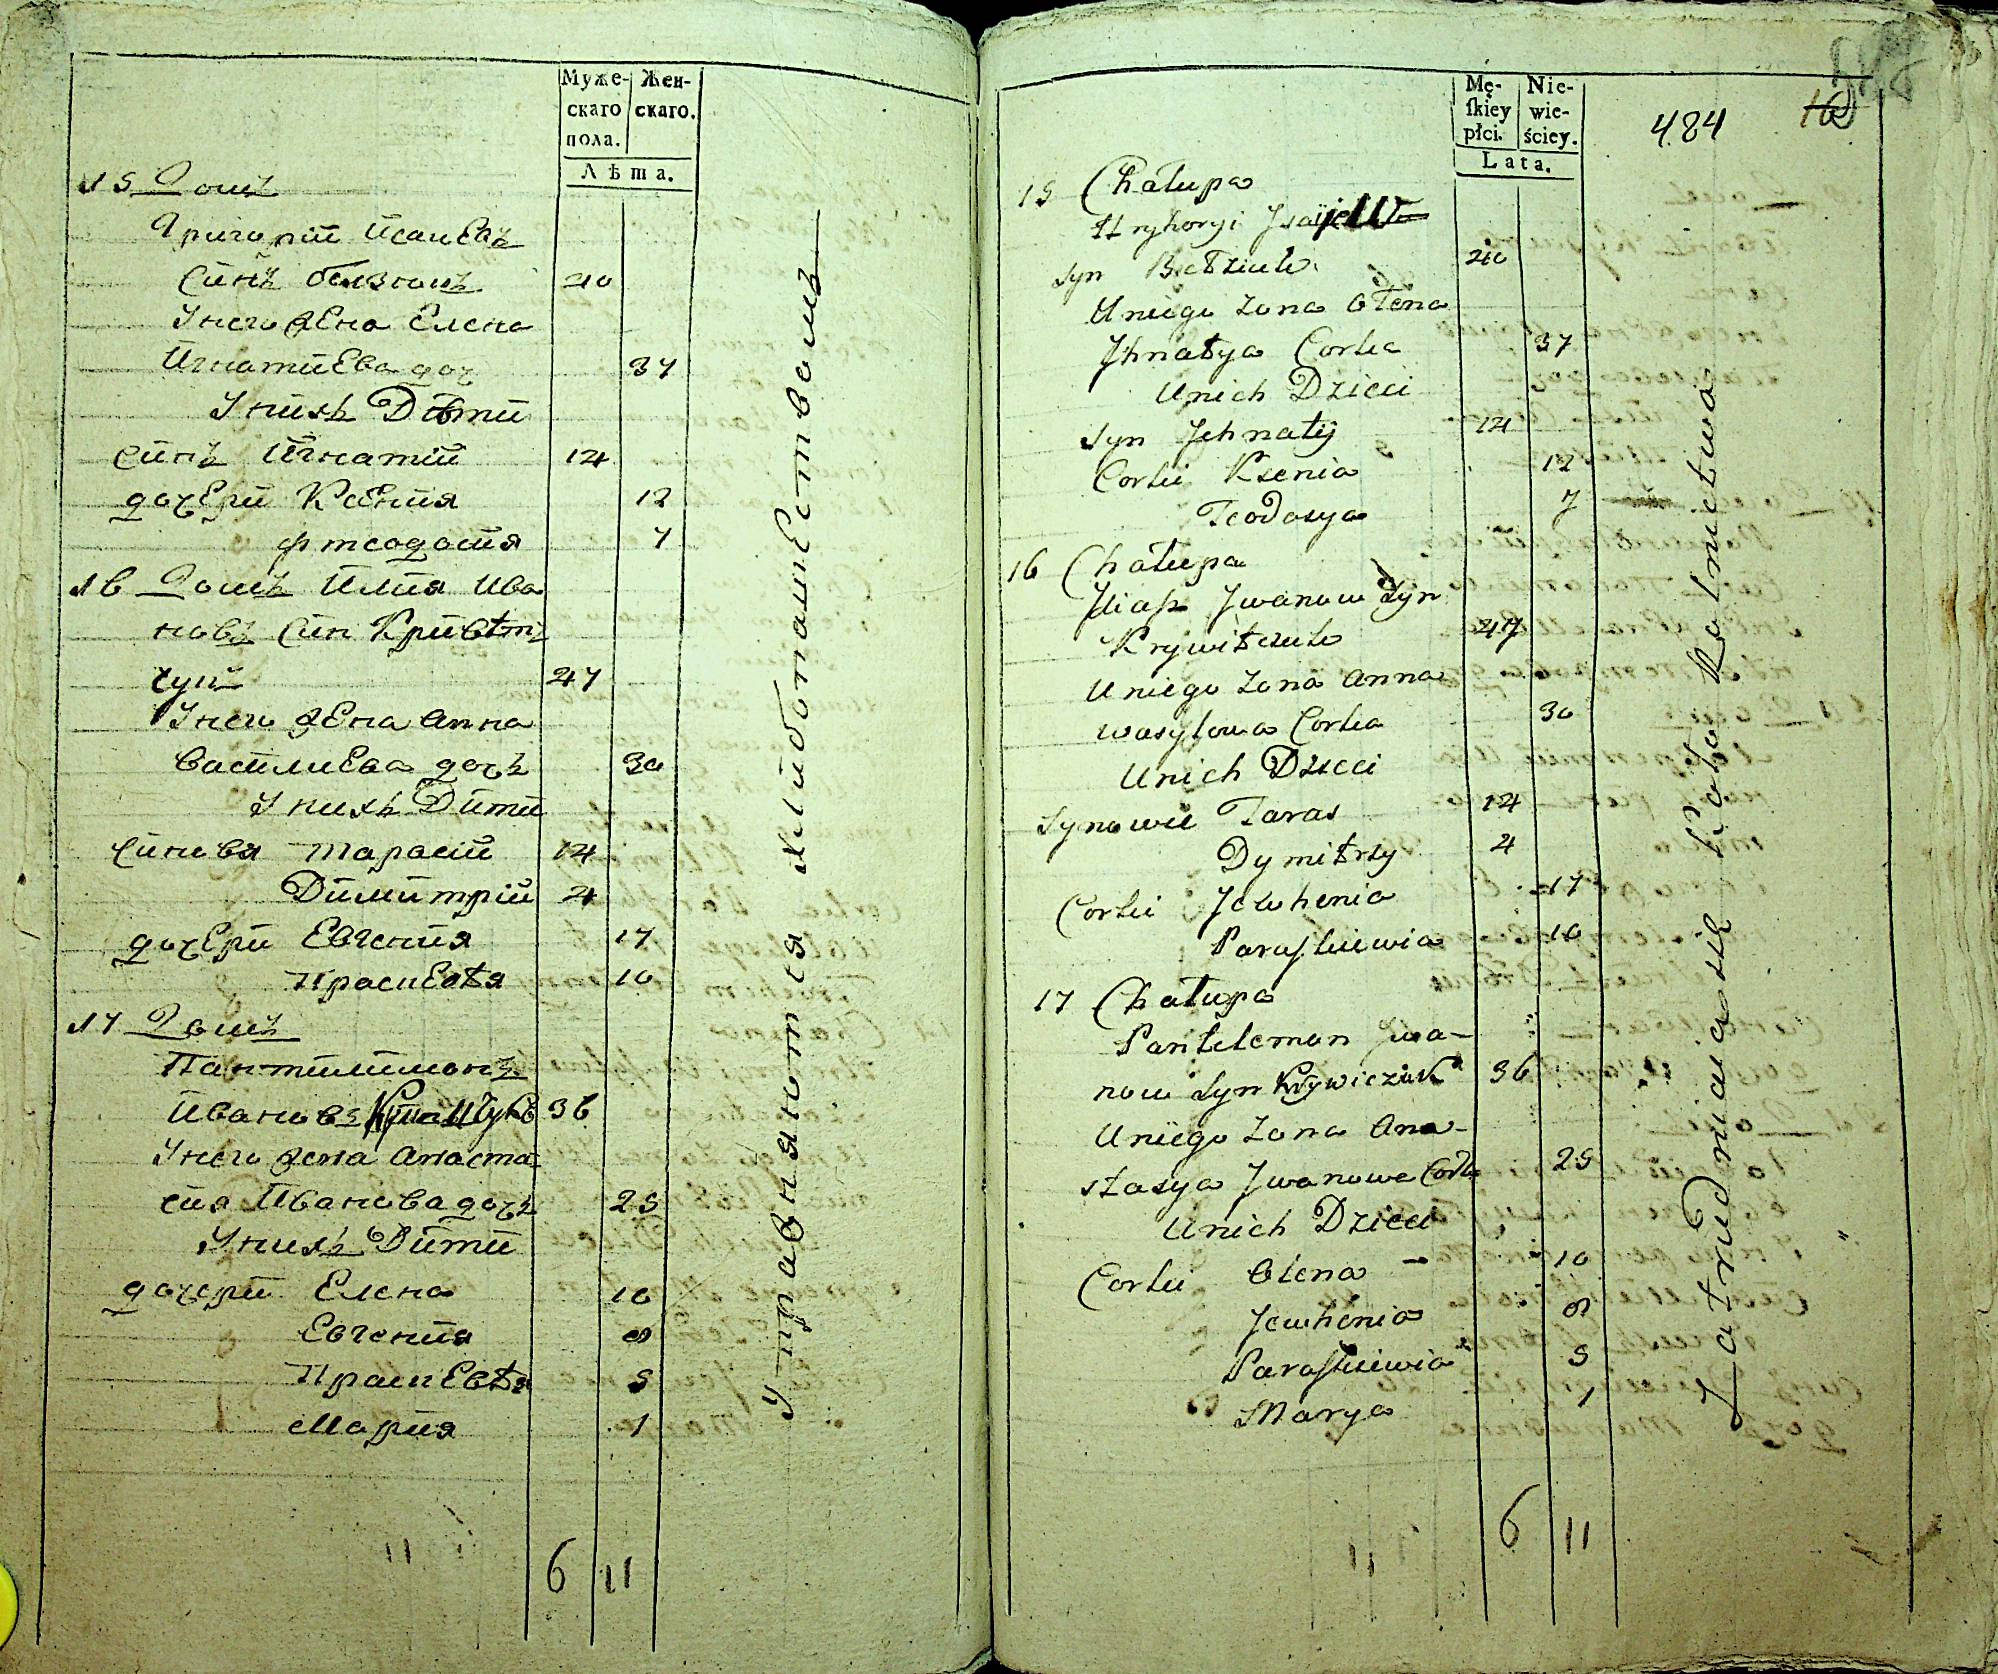 Муже- Жен-
скаго скаго.
пола.
Лѣта.
15 Домъ
Григорій Исаиевъ
Синъ 40
У него жена Елена
Игнатиева доч 37
У нихъ Дѣти
Синъ Игнатій 14
дочери Ксенія 12
Фтеодосія 7
16 Домъ Илия Ива
новъ Син Кривѣт
чук 47
У него жена Анна
Василиева дочъ 30
У нихъ Дити
Синовя Тарасій 14
Димитрій 4
дочери Евгенія 17
Праскевѣя 10
17 Домъ
Пантилимонъ
Ивановъ 36
У него жена Анаста-
сия Иванова дочъ 25
У нихъ Дити
дочери Елена 10
Евгенія 8
Праскевѣя 5
Марія 1
6 11
Управняются хлибопашествомъ
Mę- Nie-
ſkiey wie-
płci. ściey.
Lata.
484
15 Chałupa
Hryhoryi
Syn 40
U niego Zona Ołena
Jhnatya Corka 37
U nich Dzieci
Syn Jehnatij 14
Corki Ksenia 12
Teodosya 7
16 Chałupa
Jliaſz Jwanow Syn
Krywitczuk 47
U niego Zona Anna
Wasylowa Corka 30
U nich Dzieci
Synowie Taras 14
Dymitrzy 4
Corki Jewhenia 17
Paraſkiewia 10
17 Chałupa
Panteleman Jwa-
now Syn Krywiczuk 36
U niego Zona Ana-
stasya Jwanowa Corka 25
U nich Dzieci
Corki Olena 10
Jewhenia 8
Paraſkiewia 5
Marya 1
6 11
Zatrudniaia się koło Rolnictwa